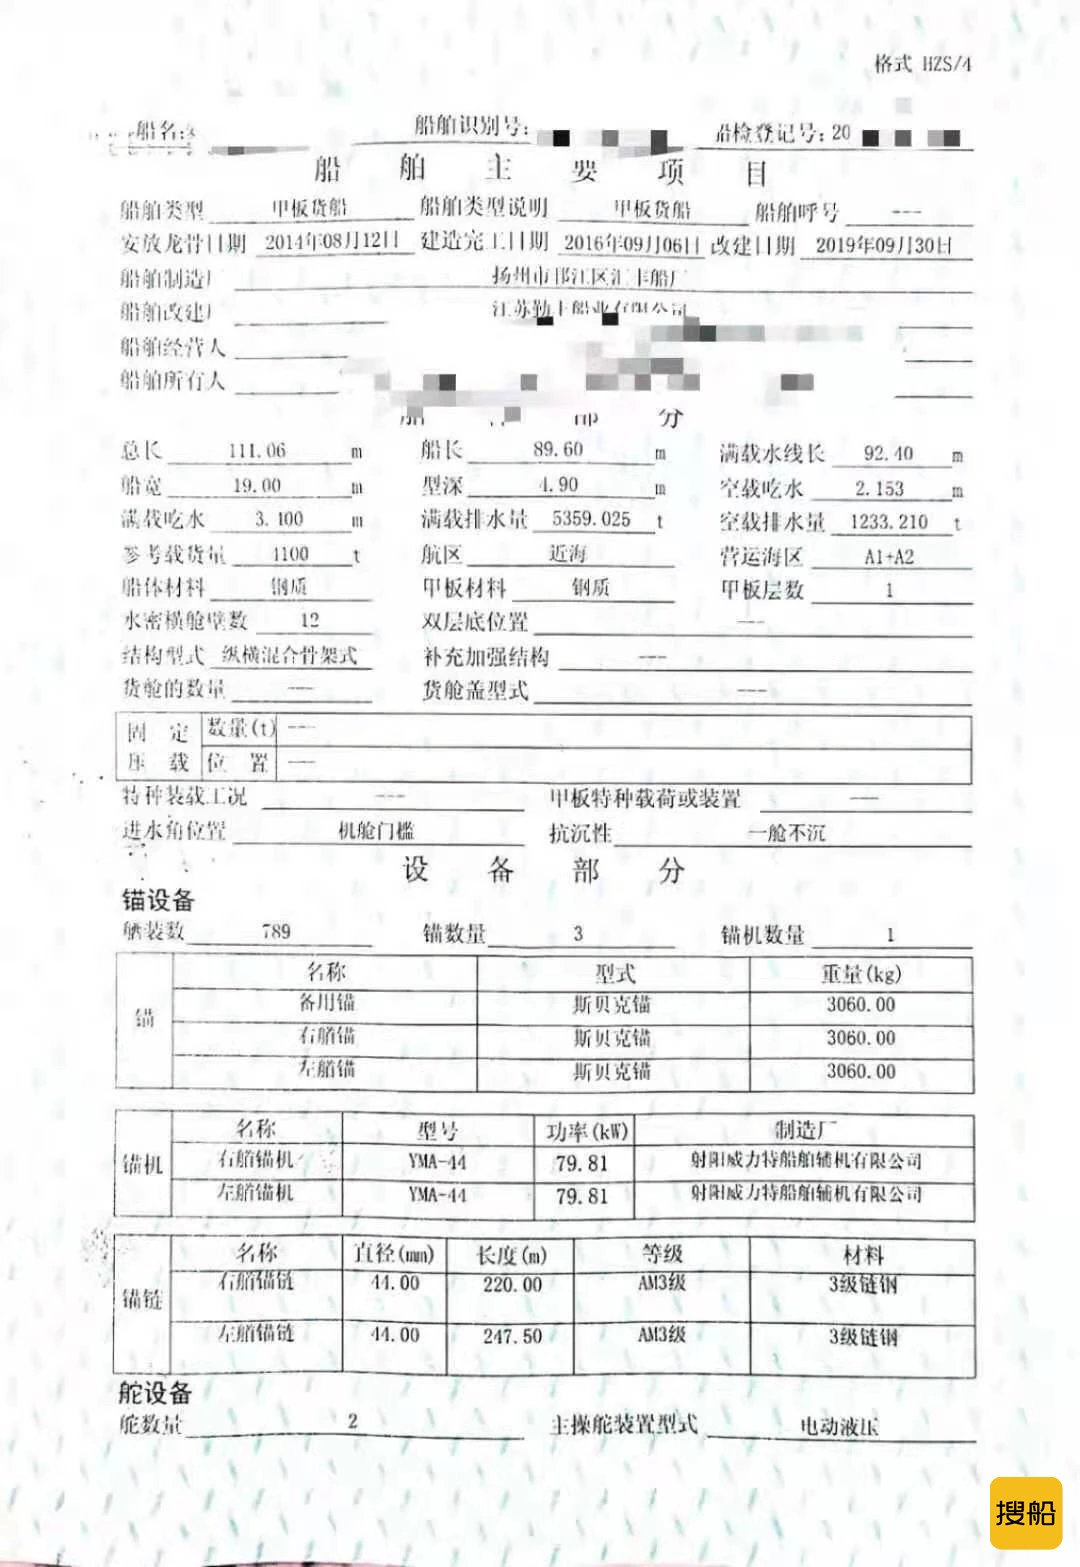 格式 HZS/4
船名: 船舶识别号: 船检登记号: 20
船舶主要项目
船舶类型 甲板货船 船舶类型说明 甲板货船 船舶呼号 ---
安放龙骨日期 2014年08月12日 建造完工日期 2016年09月06日 改建日期 2019年09月30日
船舶制造厂 扬州市邗江区汇丰船厂
船舶改建厂 江苏勤丰船业有限公司
船舶经营人
船舶所有人
部 分
总长 111.06 m 船长 89.60 m 满载水线长 92.40 m
船宽 19.00 m 型深 4.90 m 空载吃水 2.153 m
满载吃水 3.400 m 满载排水量 5359.025 t 空载排水量 1233.210 t
参考载货量 4100 t 航区 近海 营运海区 A1+A2
船体材料 钢质 甲板材料 钢质 甲板层数 1
水密横舱壁数 12 双层底位置 ---
结构型式 纵横混合骨架式 补充加强结构 ---
货舱的数量 --- 货舱盖型式 ---
固定 数量(t) ---
压载 位置 ---
特种装载工况 --- 甲板特种载荷或装置 ---
进水角位置 机舱门槛 抗沉性 一舱不沉
设备部分
锚设备
舾装数 789 锚数量 3 锚机数量 1
名称 型式 重量(kg)
锚
备用锚 斯贝克锚 3060.00
右艏锚 斯贝克锚 3060.00
左艏锚 斯贝克锚 3060.00
名称 型号 功率(kW) 制造厂
锚机
右艏锚机 YMA-44 79.81 射阳威力特船舶辅机有限公司
左艏锚机 YMA-44 79.81 射阳威力特船舶辅机有限公司
名称 直径(mm) 长度(m) 等级 材料
锚链
右艏锚链 44.00 220.00 AM3级 3级链钢
左艏锚链 44.00 247.50 AM3级 3级链钢
舵设备
舵数量 2 主操舵装置型式 电动液压
搜船